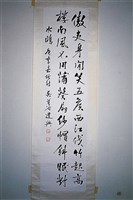 傲吏身閑笑五侯西江伐竹起高
樓南風不用蒲葵扇紗帽斜眠對
水鷗